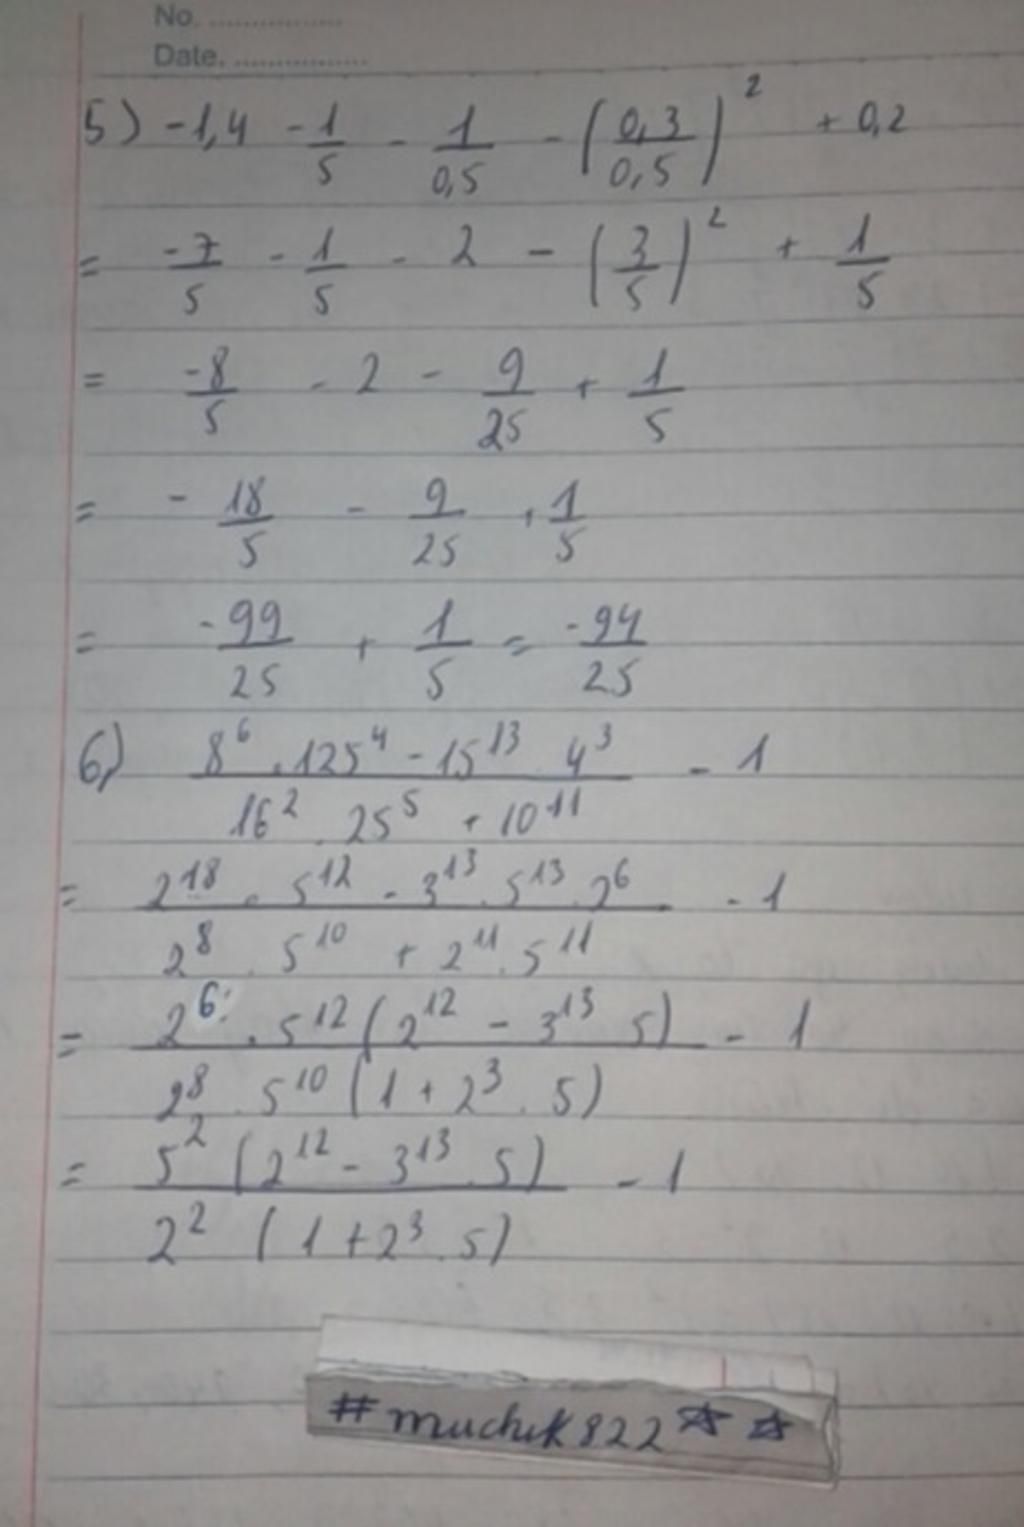 No. ................
Date. ................
5) -1,4 - 1/5 - 1/0,5 - (0,3/0,5)² + 0,2
= -7/5 - 1/5 - 2 - (3/5)² + 1/5
= -8/5 - 2 - 9/25 + 1/5
= - 18/5 - 9/25 + 1/5
= -99/25 + 1/5 = -94/25
6) (8⁶ . 125⁴ - 15¹³ . 4³)/(16² . 25⁵ + 10¹¹) - 1
= (2¹⁸ . 5¹² - 3¹³ . 5¹³ . 2⁶)/(2⁸ . 5¹⁰ + 2¹¹ . 5¹¹) - 1
= (2⁶ . 5¹² (2¹² - 3¹³ . 5))/(2⁸ . 5¹⁰ (1 + 2³ . 5)) - 1
= (5² (2¹² - 3¹³ . 5))/(2² (1 + 2³ . 5)) - 1
#muchik822 ☆ ☆